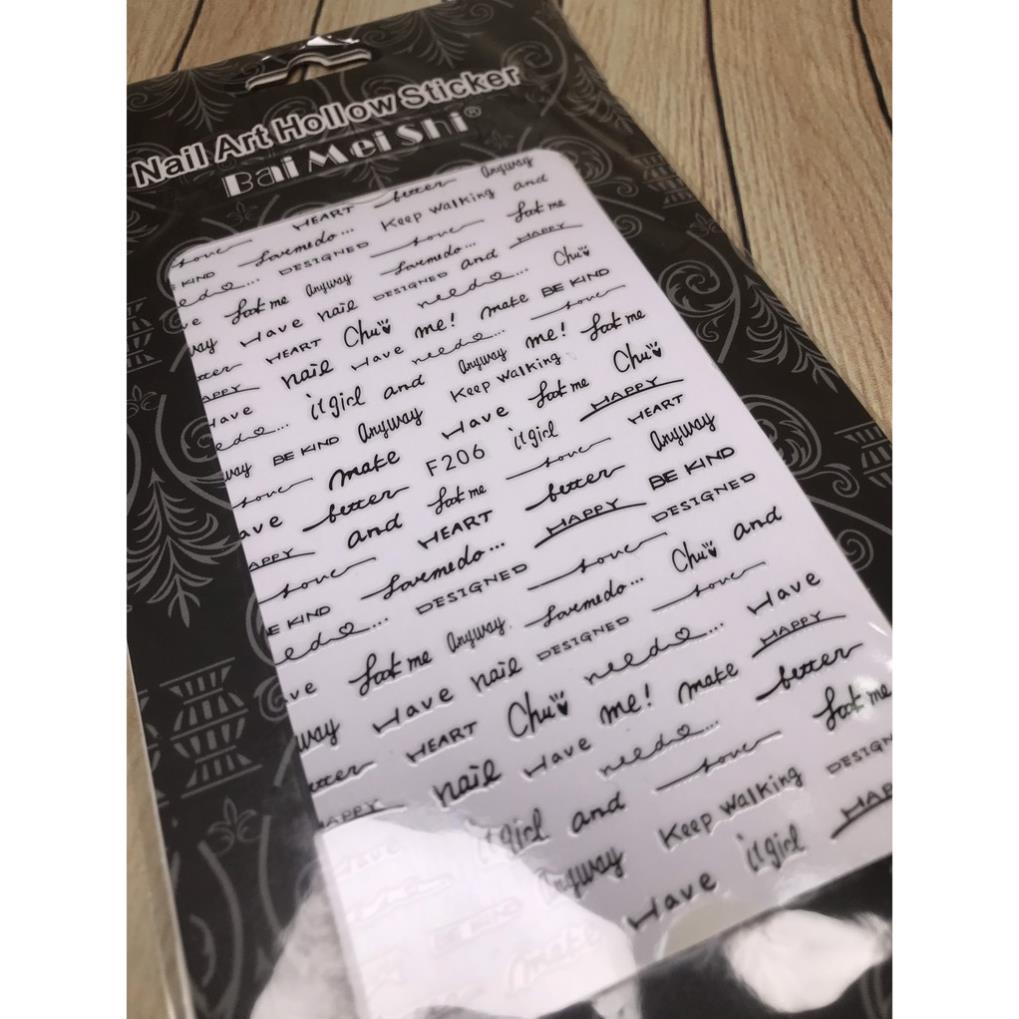 Nail Art Hollow Sticker
Bai Mei Shi®
HEART better Anyway
love Lovemedo... Keep walking and
BE KIND DESIGNED love look me
need... Lovemedo... HAPPY
look me Anyway DESIGNED and Chu
Have nail need... BE KIND
HEART Chu me! make love
HAPPY nail Have need... Anyway me! look me
Have it girl and Keep walking Chu
need... BE KIND Anyway Have look me HAPPY
way make F206 it girl HEART
love better look me love Anyway
ave and HEART better BE KIND
HAPPY Lovemedo... HAPPY DESIGNED
love DESIGNED love Chu and
BE KIND Anyway Lovemedo... love Have
need... look me nail DESIGNED HAPPY
ave Have Chu need... make better
way HEART me! look me
etter nail Have need... love DESIGN
HAPPY it girl and Keep walking HAP
Anyway it girl
BE KIND Have
make